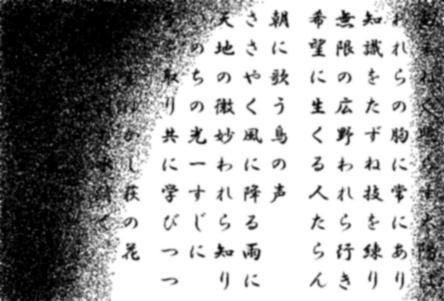 われらの胸に常にあり
知識をたずね技を練り
無限の広野われら行き
希望に生くる人たらん
朝に歌う鳥の声
ささやく風に降る雨に
天地の微妙われら知り
いのちの光一すじに
取り共に学びつつ
かし萩の花